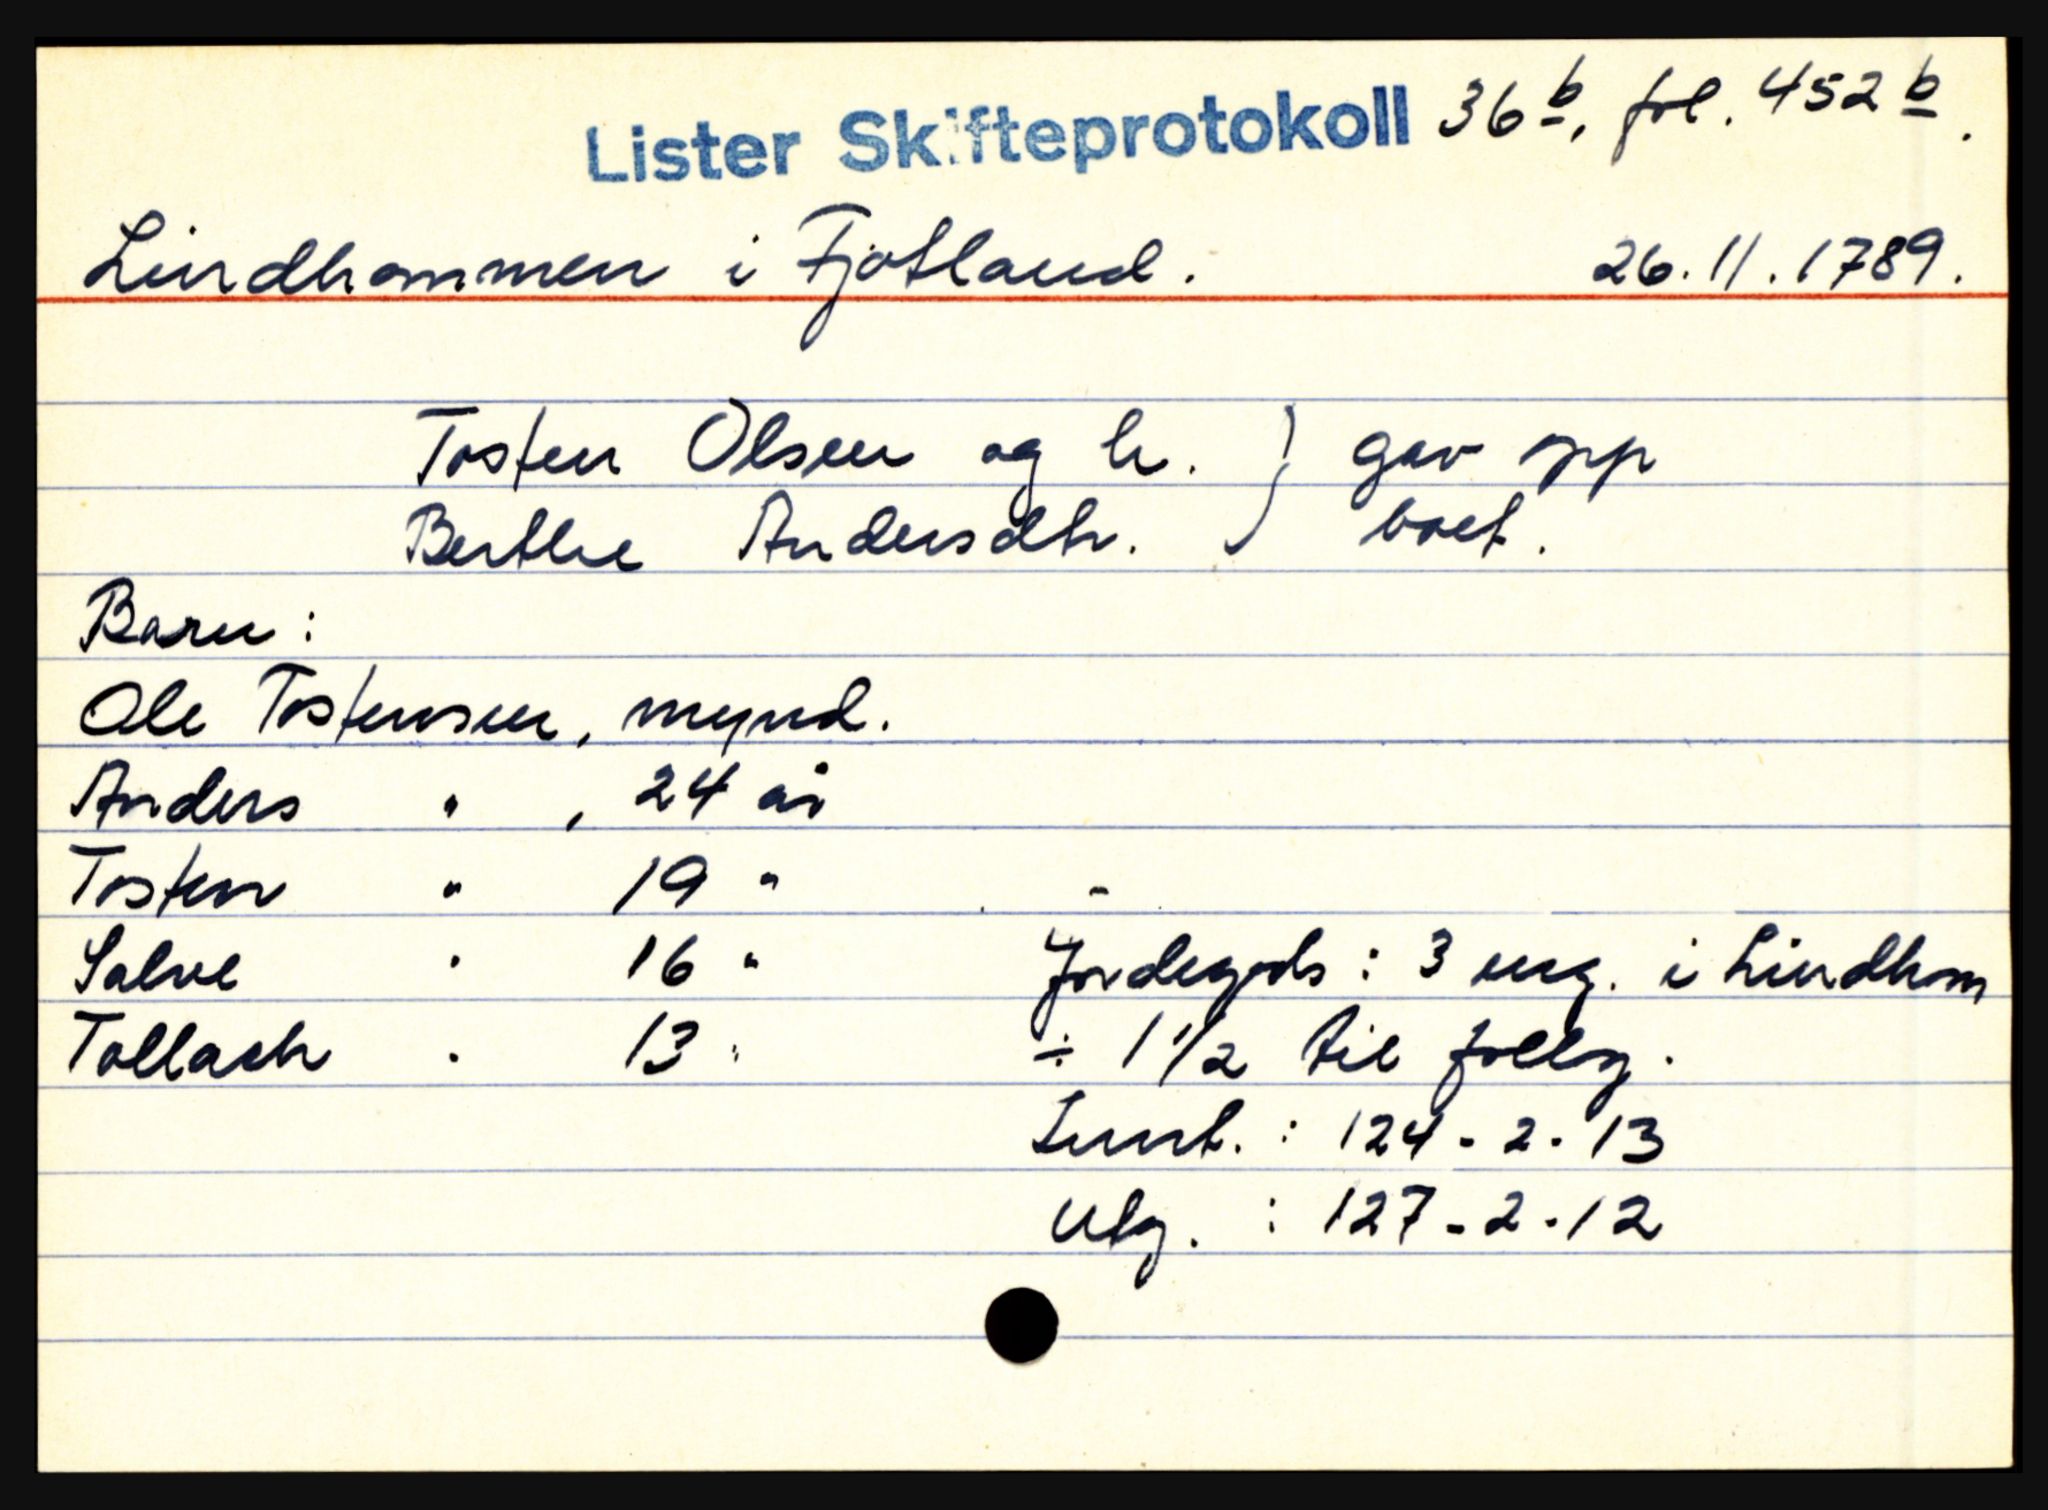 Lister Skifteprotokoll 36 b, fol. 452 b.
Lindhommen i Fjotland. 26.11.1789.
Tosten Olsen og h. } gav opp
Berthe Andersdtr. } boet.
Barn:
Ole Tostensen, mynd.
Anders " , 24 år
Tosten " 19 "
Salve " 16 " Jordegods: 3 eng. i Lindhom
Tollach " 13 " ÷ 1 1/2 til follog.
Innt. : 124 - 2 - 13
Utg. : 127 - 2 - 12